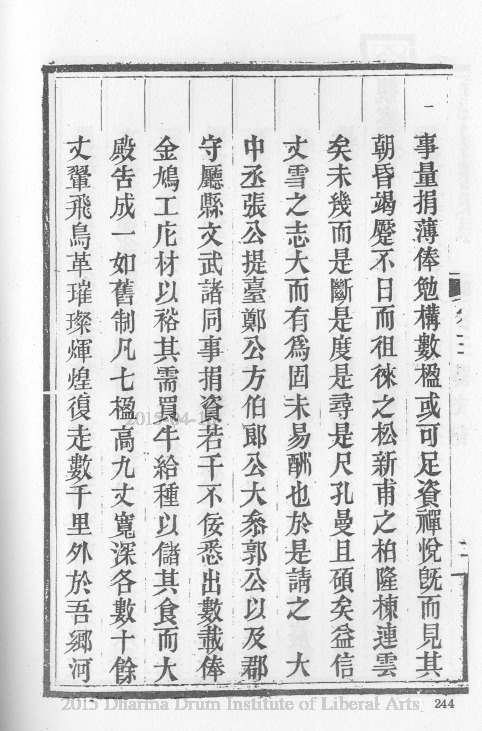 事量捐薄俸勉構數楹或可足資禪悅旣而見其
朝昏竭蹷不日而徂徠之松新甫之柏隆棟連雲
矣未幾而是斷是度是尋是尺孔曼且碩矣益信
丈雪之志大而有爲固未易酬也於是請之　大
中丞張公提臺鄭公方伯郞公大叅郭公以及郡
守廳縣文武諸同事捐資若干不佞悉出數載俸
金鳩工庀材以裕其需買牛給種以儲其食而大
殿告成一如舊制凡七楹高九丈寬深各數十餘
丈翬飛鳥革璀璨煇煌復走數千里外於吾鄉河
244
2015 Dharma Drum Institute of Liberal Arts